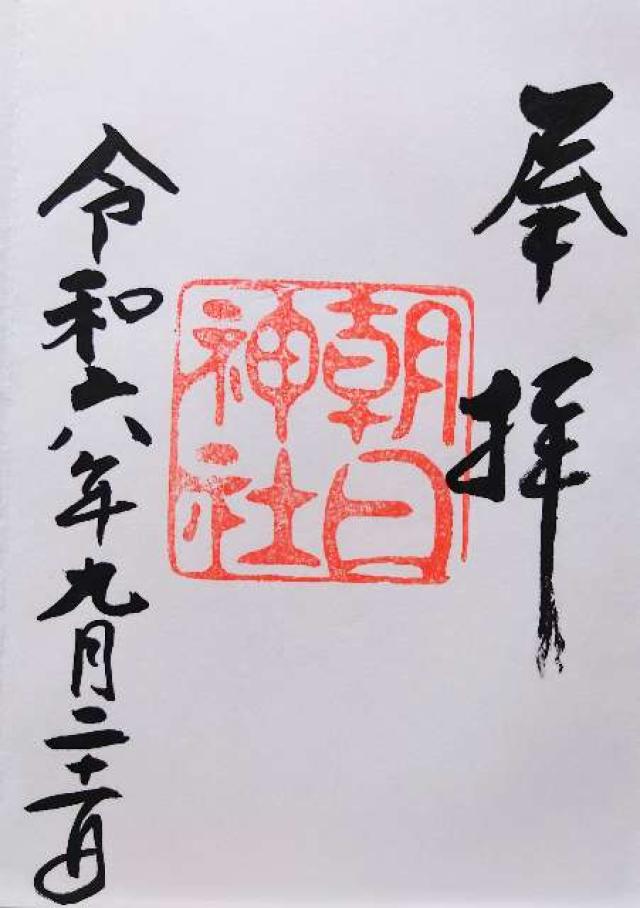 奉拝
朝日
神社
令和六年九月二十二日